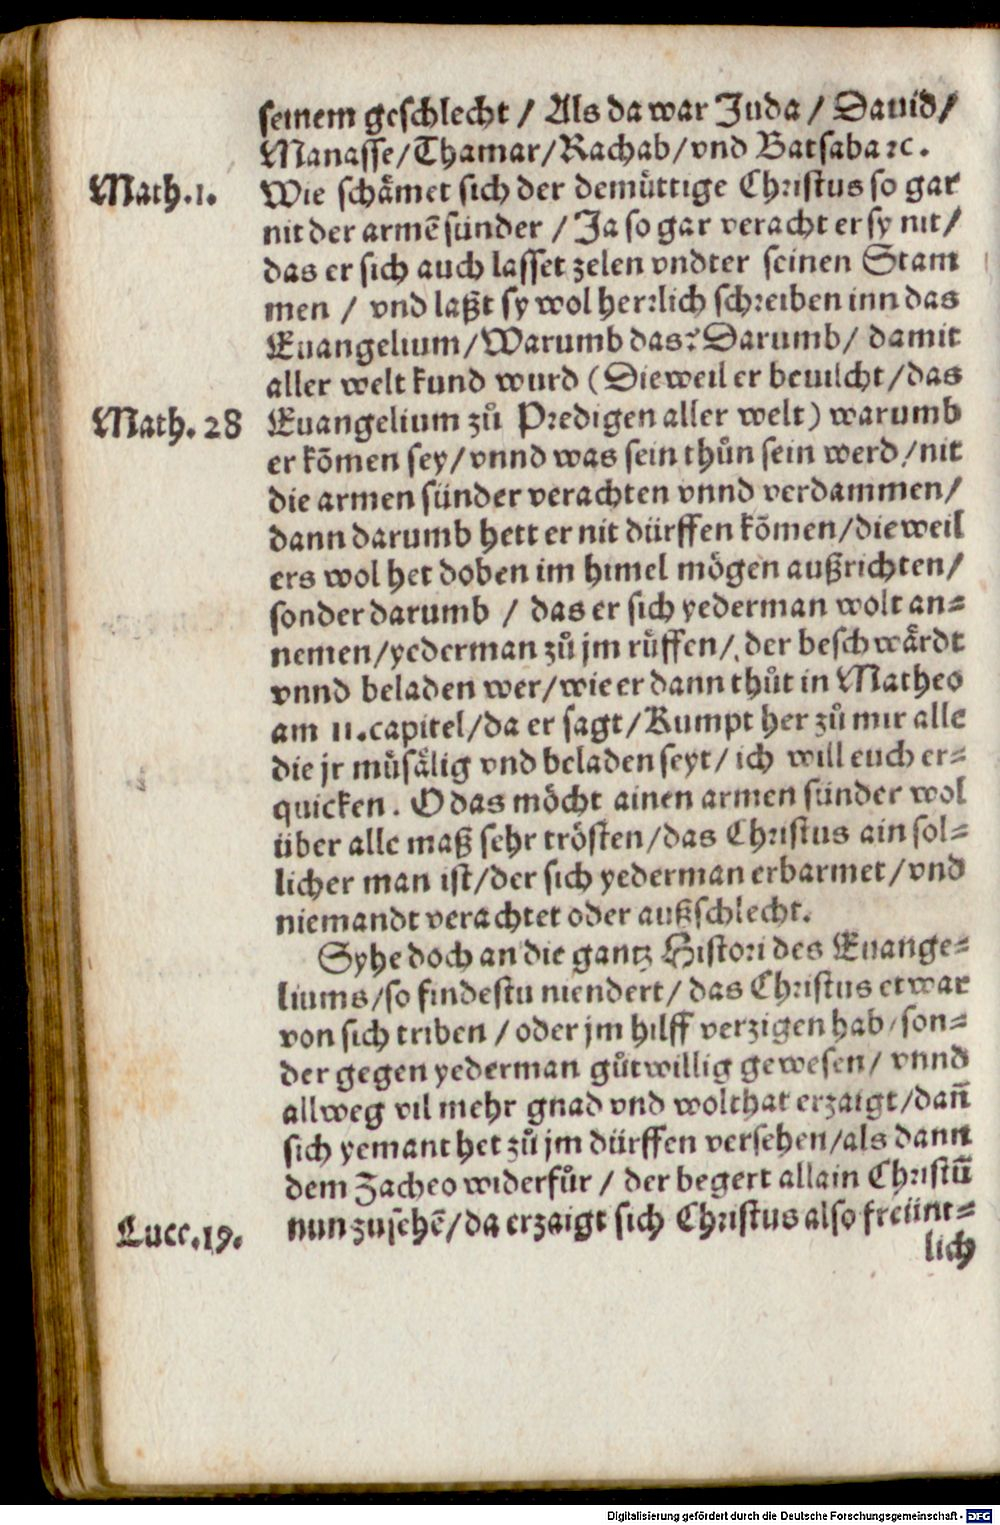 seinem geschlecht / Als da war Juda / Dauid/
Manasse/Thamar/Rachab/vnd Batsaba ꝛc.
Math.1. Wie schämet sich der demüttige Christus so gar
nit der armẽ sünder / Ja so gar veracht er sy nit/
das er sich auch lasset zelen vndter seinen Stam
men / vnd laßt sy wol herrlich schreiben inn das
Euangelium/Warumb das? Darumb/ damit
aller welt kund wurd (Dieweil er beuilcht/das
Math. 28 Euangelium zů Predigen aller welt) warumb
er kõmen sey/vnnd was sein thůn sein werd/nit
die armen sünder verachten vnnd verdammen/
dann darumb hett er nit dürffen kõmen/dieweil
ers wol het doben im himel mögen außrichten/
sonder darumb / das er sich yederman wolt an-
nemen/yederman zů jm růffen/ der beschwärdt
vnnd beladen wer/wie er dann thůt in Matheo
am 11.capitel/da er sagt/Kumpt her zů mir alle
die jr müsälig vnd beladen seyt/ ich will euch er-
quicken. O das möcht ainen armen sünder wol
über alle maß sehr trösten/das Christus ain sol-
licher man ist/der sich yederman erbarmet/vnd
niemandt verachtet oder außschlecht.
Syhe doch an die gantz Histori des Euange-
liums/so findestu niendert/ das Christus etwar
von sich triben / oder jm hilff verzigen hab/son-
der gegen yederman gůtwillig gewesen/ vnnd
allweg vil mehr gnad vnd wolthat erzaigt/dañ
sich yemant het zů jm dürffen versehen/als dann
dem Zacheo widerfůr / der begert allain Christũ
Lucc.19. nun zusehẽ/da erzaigt sich Christus also freünt-
lich
Digitalisierung gefördert durch die Deutsche Forschungsgemeinschaft - DFG